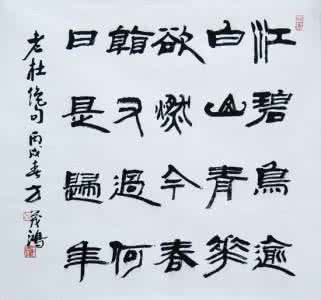 江碧鳥逾
白山青花
欲燃今春
看又過何
日是歸年
老杜絕句丙戌春方茂鴻